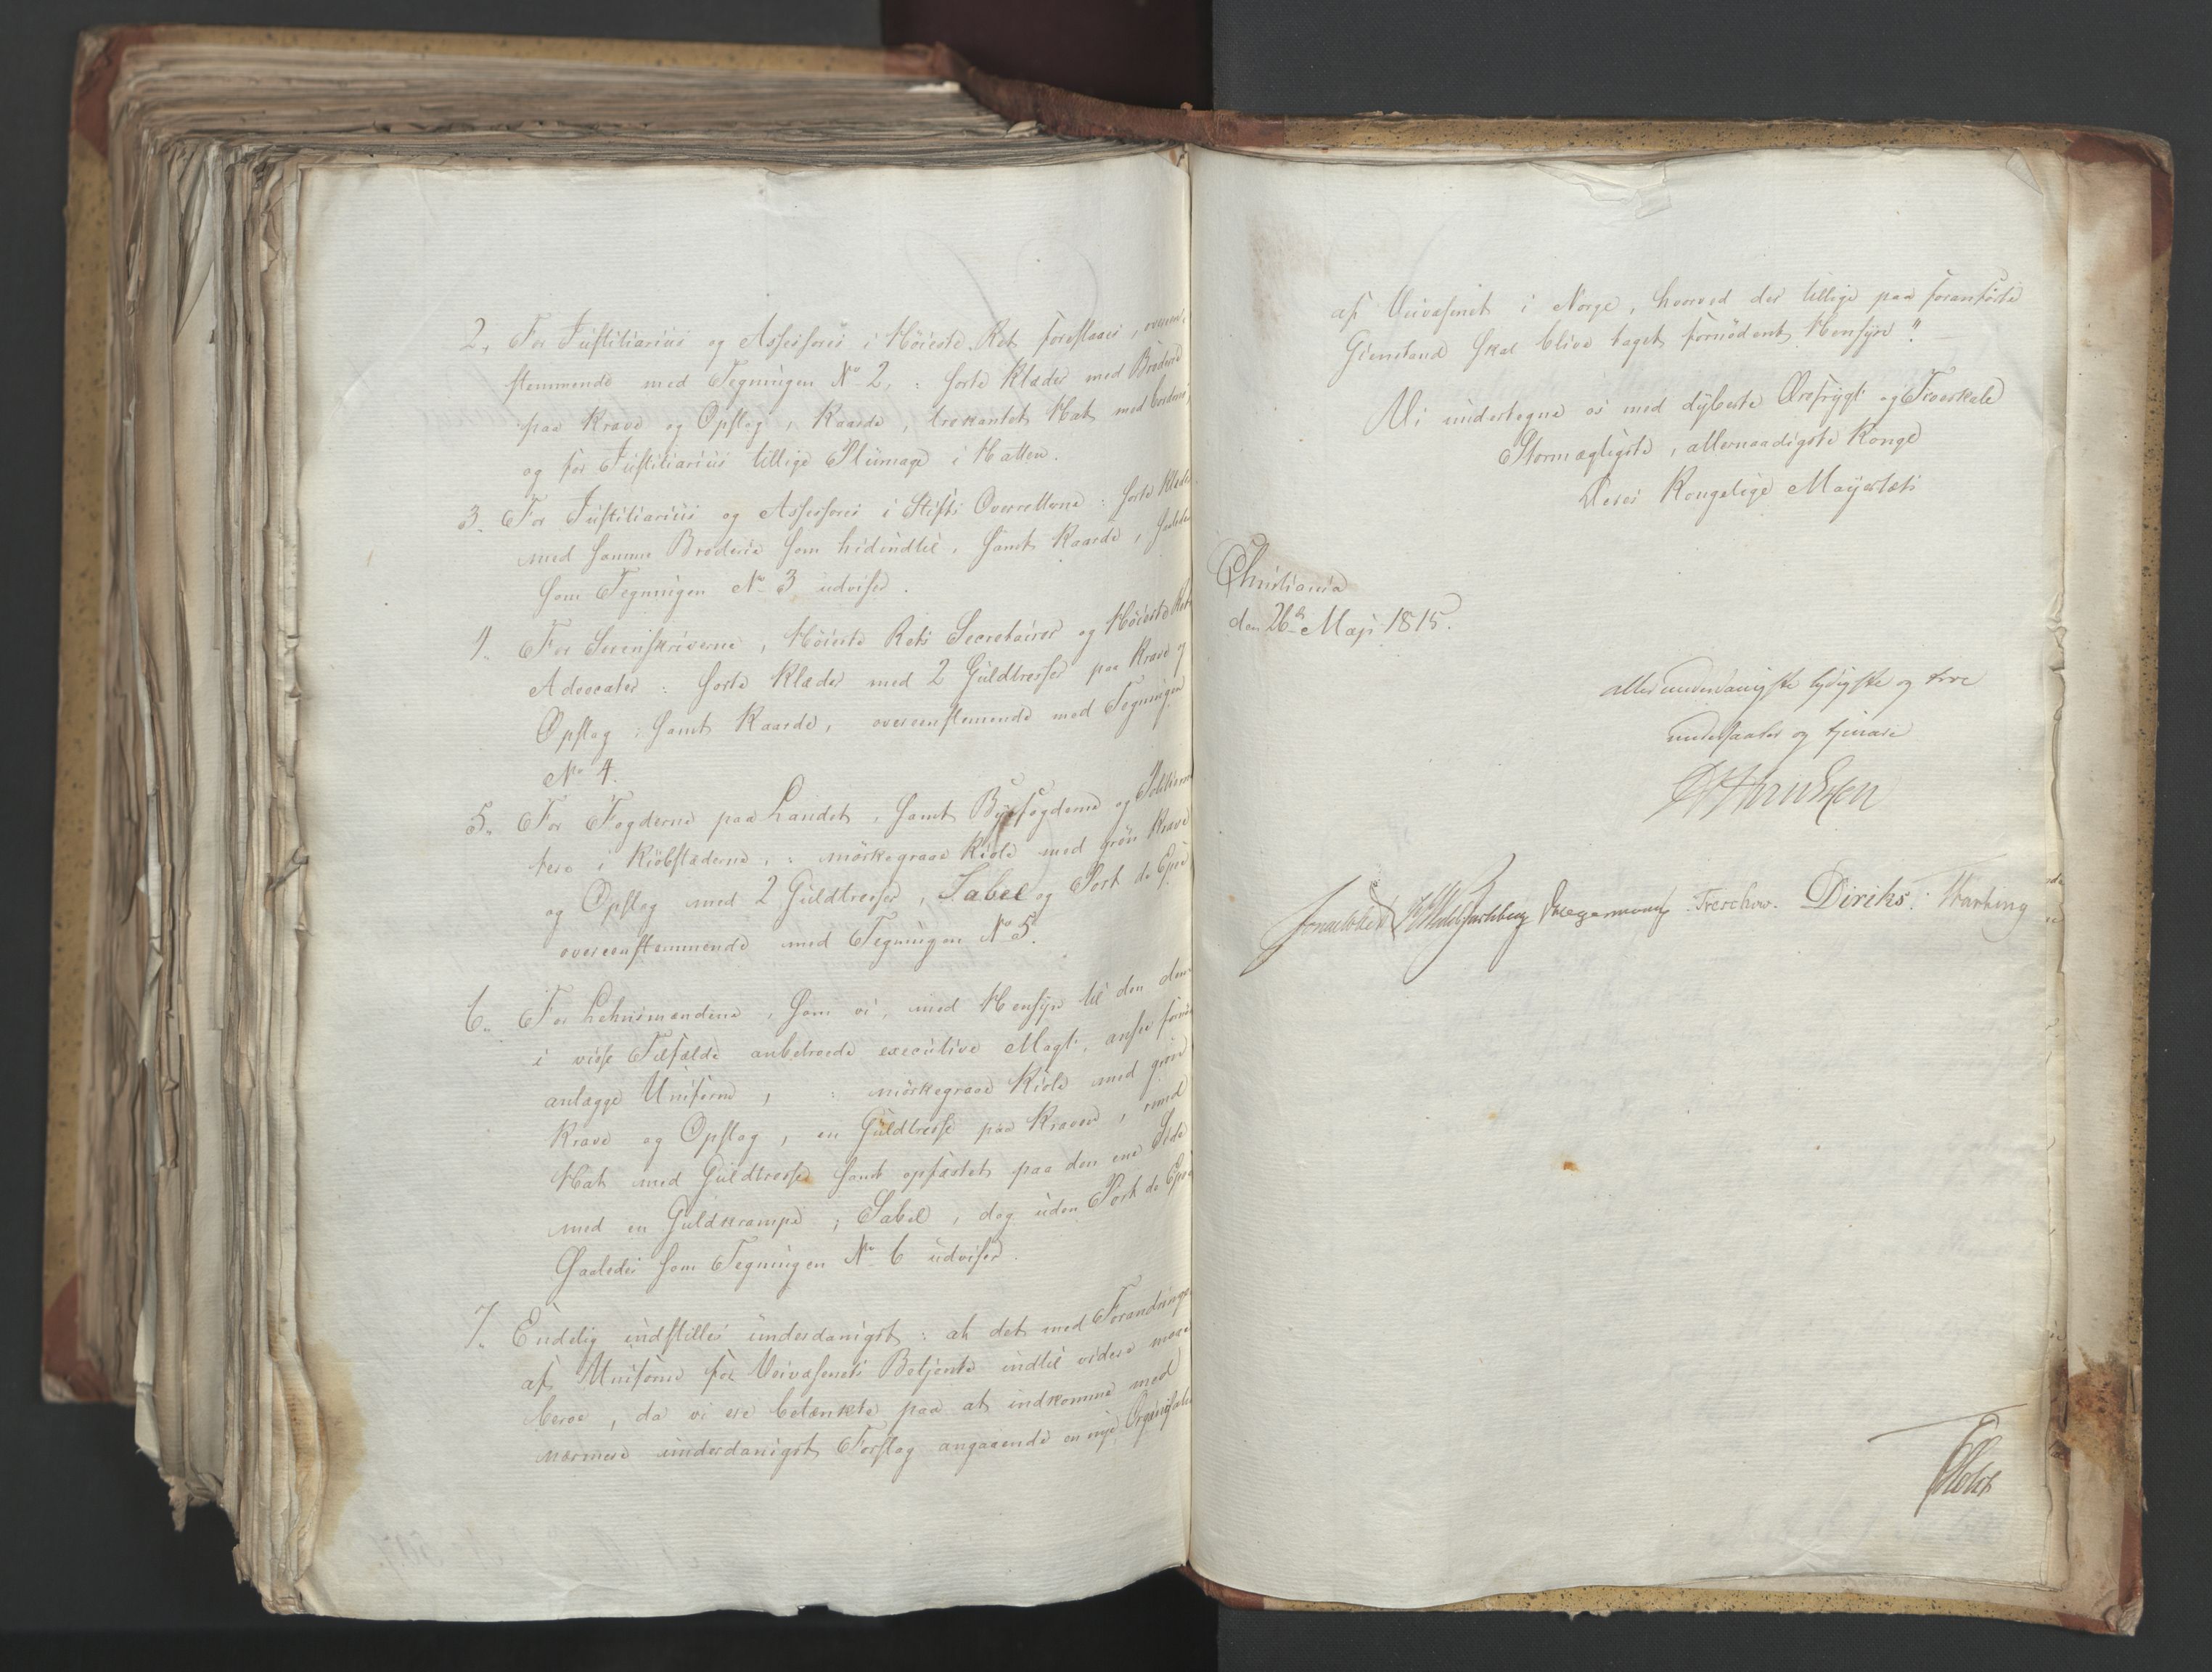 2. For Justitiarius og Assessores i Höieste Ret foreslaaes, overeens
stemmende med Tegningen No 2,: sorte Klæder med Broderie
paa Krave og Opslag, Kaarde, trekantet Hat med
og for Justitiarius tillige Plümage i Hatten.
3. For Justitiarius og Assessores i Stifts Overretterne: sorte Klæder
med samme Broderie som hidindtil, samt Kaarde,
som Tegningen No 3 udviser.
4. For Sorenskriverne, Höieste Rets Secretairer og Höieste Rets
Advocater: sorte Klæder med 2 Guldtresser paa Krave og
Opslag: samt Kaarde, overeenstemmende med Tegningen
No 4.
5. For Fogderne paa Landet, samt Byefogderne og
i Kiöbstæderne,: mörkegraae Kiole med grön Krave
og Opslag med 2 Guldtresser, Sabel og Port de Epée
overeenstemmende med Tegningen No 5.
6. For Lehnsmændene, som vi, med Hensyn til den dem
i visse Tilfælde anbetroede executive Magt, ansee
anlægge Uniform,: mörkegraae Kiole med grön
Krave og Opslag, en Guldtresse paa Kraven, rund
Hat med Guldtresse samt opfæstet paa den ene Side
med en Guldkrampe; Sabel, dog uden Port de Epée
Saaledes som Tegningen No 6 udviser.
7. Endelig indstilles underdanigst: at det med Forandringen
af Uniform for Veivæsenets Betjente indtil videre maae
beroe, da vi ere betænkte paa at indkomme med
nærmere underdanigst Forslag angaaende en nye Organisation
af Veivæsenet i Norge, hvorved der tillige paa foranförte
Gienstand skal blive taget fornödent Hensyn".
Vi undertegne os med dybeste Ærefrygt og Troeskab
Stormægtigste, allernaadigste Konge
Deres Kongelige Mayestæts
Christiania
den 26de Maji 1815.
allerunderdanigste lydigste og troe
undersaatter og tjenere
Sommerhielm Hegermann Treschow. Diriks. Harbing
Holst